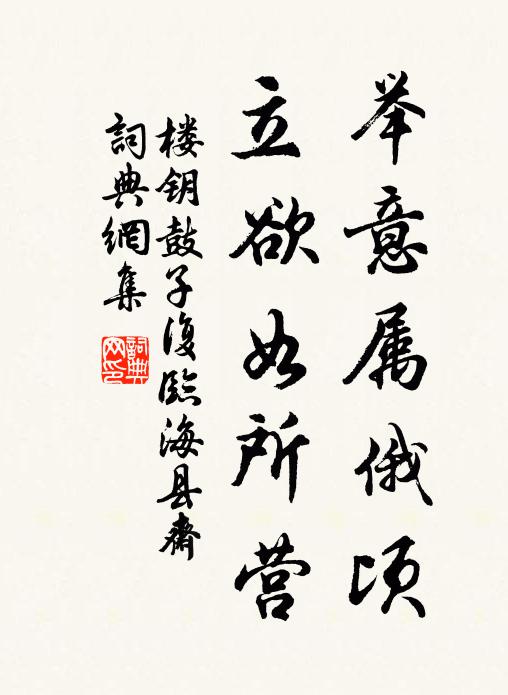 举意属俄顷
立欲如所营
楼钥鼓子复临海县斋
詞典網集
詞典
网印